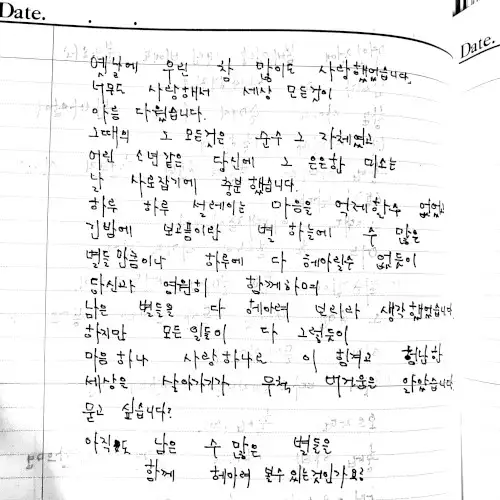 Date.
Date.
옛날에 우린 참 많이도 사랑했었습니다.
너무도 사랑해서 세상 모든것이
아름 다웠습니다.
그때의 그 모든것은 순수 그 자체였고
어린 소년같은 당신에 그 은은한 미소는
날 사로잡기에 충분했습니다.
하루 하루 설레이는 마음을 억제할수 없었고
긴밤에 보고픔이란 별 하늘에 수 많은
별들 만큼이나 하루에 다 헤아릴수 없듯이
당신과 영원히 함께하며
남은 별들을 다 헤아려 보리라 생각했었습니다
하지만 모든일들이 다 그렇듯이
마음 하나 사랑하나로 이 힘겨고 험난한
세상은 살아가기가 무척 버거움은 알았습니다
묻고 싶습니다?
아직도 남은 수 많은 별들을
함께 헤아려 볼수 있는것인가요?